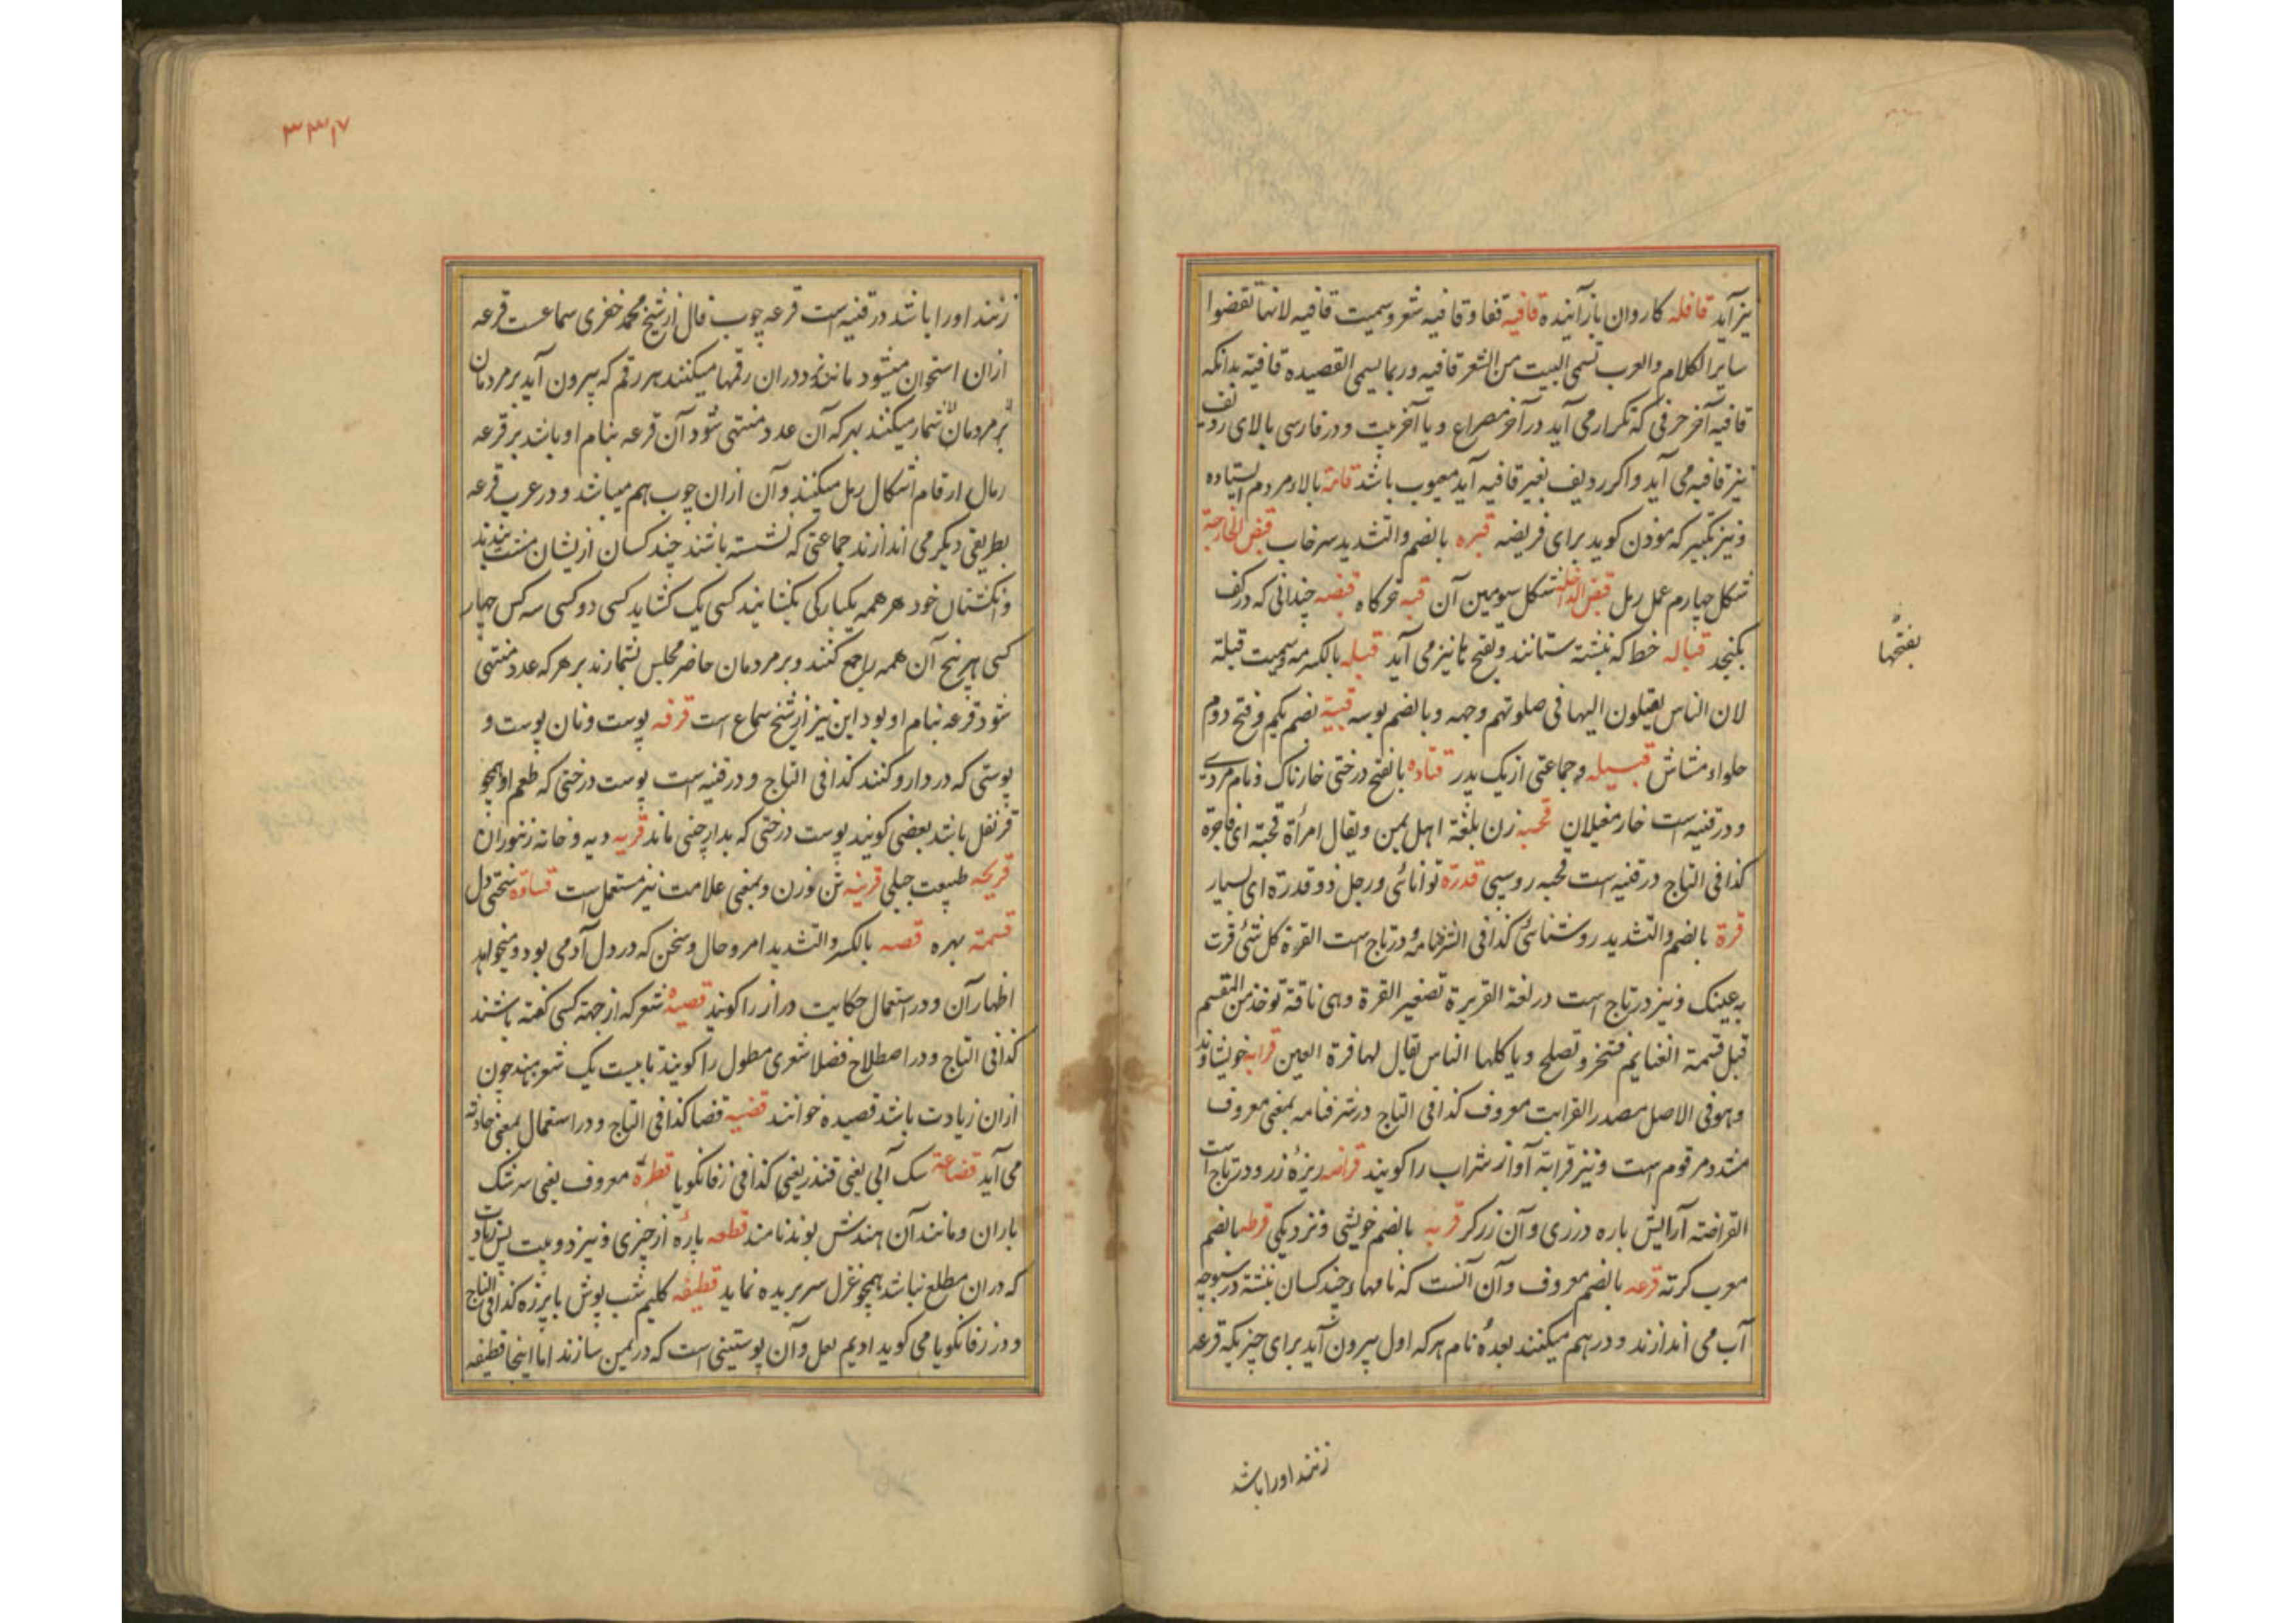 نیز آید قافله کاروان باز آینده قافیه قفا و قافیه شعر و سمیت قافیه لانها تقفوا
سایر الکلام والعرب تسمی البیت من الشعر قافیه و ربما یسمی القصیده قافیة بدانکه
قافیه آخر حرفی که تکرار می آید در آخر مصراع و یا آخر بیت و در فارسی بالای ردیف
نیز قافیه می آید و اکر ردیف بغیر قافیه آید معیوب باشد قامة بالاء مردم ایستاده
و نیز تکبیر که موذن کوید برای فریضه قبره بالضم والتشدید سرخاب قبض الخارجة
شکل چهارم عمل رمل قبض الداخلة شکل سیومین آن قبه خرکاه قبضه چندانی که در کف
بکنجد قباله خط که نبشته ستانند و بفتح تا نیز می آید قبله بالکسر مه و سمیت قبلة
بفتحها
لان الناس یقبلون الیها فی صلوتهم وجهه و بالضم بوسه بضم یکم و فتح دوم
حلواء مشاش قبیله جماعتی از یک پدر قتاده بالفتح درختی خارناک و نام مردی
و در قنیه است خار مغیلان قحبه زن بلغة اهل یمن و یقال امرأة قحبة ای فاجرة
کذا فی التاج در قنیه است قحبه روسپی قدرة توانائی و رجل ذو قدرة ای یسار
قرة بالضم والتشدید روشنائی کذا فی الشرفنامه و در تاج است القرة کل شئ قرت
به عینک و نیز در تاج است در لغة القریرة تصغیر القرة و هی ناقة توخذ من المقسم
قبل قسمة الغنایم فتنحر و تصلح و یاکلها الناس یقال لها قرة العین قرابه خویشاوند
و هو فی الاصل مصدر القرابت معروف کذا فی التاج در شرفنامه بمعنی معروف
مشدد مرقوم است و نیز قرابة آواز شراب را کویند قراضه ریزهٔ زر و در تاج است
القراضة آرایش باره درزی و آن زرکر قربه بالضم خویشی و نزدیکی قرطه بالضم
معرب کرته قرعه بالضم معروف و آن آنست که نامهاء چند کسان نبشته در سبوچه
آب می اندازند و در هم میکنند بعده نام هر که اول بیرون آید برای چیزیکه قرعه
زنند او را باشد
۳۳۷
زنند او را باشد در قنیه است قرعه چوب فال از شیخ محمد خضری سماعست قرعه
ازان استخوان میشود مانند نرد و دران رقمها میکنند هر رقم که بیرون آید بر مردمان
بر مردمان شمار میکنند بهر که آن عدد منتهی شود آن قرعه بنام او باشد بر قرعه
رمال ارقام اشکال رمل میکنند و آن ازان چوب هم میباشد و در عرب قرعه
بطریقی دیکر می اندازند جماعتی که نشسته باشند چند کسان ازیشان مشت ببندند
و انکشتان خود هر همه یکبارکی بکشایند کسی یک کشاید کسی دو کسی سه کس چهار
کسی پنج آن همه را جمع کنند و بر مردمان حاضر مجلس بشمارند بر هر که عدد منتهی
شود قرعه بنام او بود این نیز از شیخ سماع است قرفه پوست و نان پوست و
پوستی که در دارو کنند کذا فی التاج و در قنیه است پوست درختی که طعم او همچو
قرنفل باشد بعضی کویند پوست درختی که بدارچنی ماند قریه دیه و خانه زنبوران
قریحه طبیعت جبلی قرینه تن و زن و بمعنی علامت نیز مستعمل است قساوة سختی دل
قسمة بهره قصه بالکسر والتشدید امر و حال و سخن که در دل آدمی بود و میخواهد
اظهار آن و در استعمال حکایت دراز را کویند قصیده شعر که از جهة کسی کفته باشند
کذا فی التاج و در اصطلاح فضلا شعری مطول را کویند تا بیست یک شعر نهند چون
ازان زیادت باشد قصیده خوانند قضیه قضا کذا فی التاج و در استعمال بمعنی حادثه
می آید قضاعة سک آبی یعنی قندز یعنی کذا فی زفانکویا قطرة معروف یعنی سرشک
باران و مانند آن هندش بوند نامند قطعه پارهٔ از چیزی و نیز دو بیت پس زیادت
که دران مطلع نباشد همچو غزل سر بریده نماید قطیفه کلیم شب پوش با پرزه کذا فی التاج
و در زفانکویا می کوید ادیم لعل و آن پوستینی است که در یمن سازند اما اینجا قطیفه